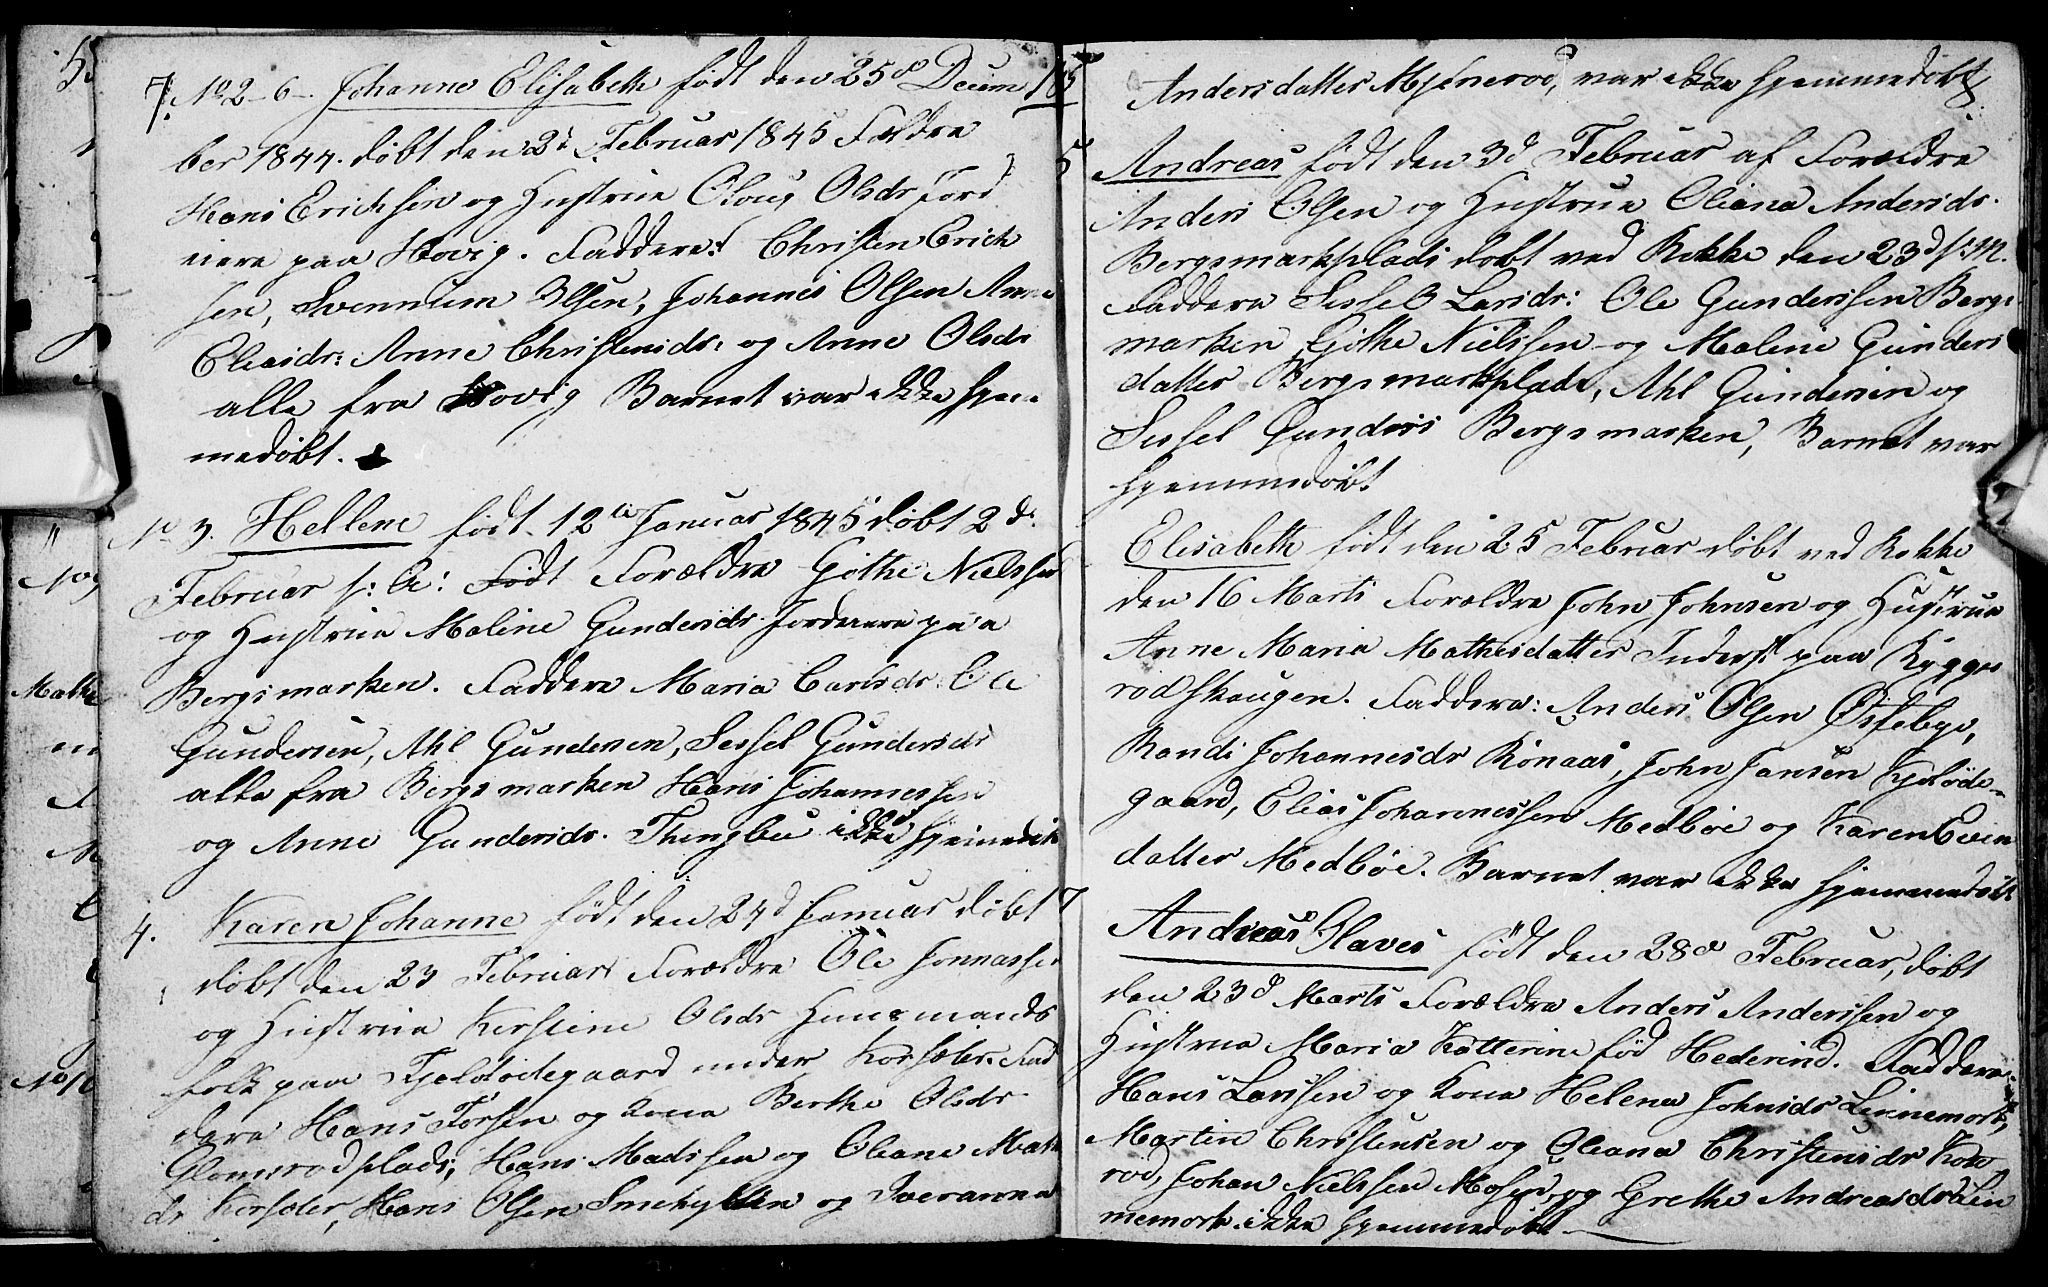 7. No 2-6-. Johanne Elisabeth født den 25de Decem
ber 1844. døbt den 2d Februar 1845 Fældre
Hans Erichsen og Hustrue Oloug Olsdr Jord
eiere paa Hovig. Faddere: Christen Erich
sen, Svennum Olsen, Johannes Olsen Anne
Eliasdr: Anne Christensdr: og Anne Olsdr
alle fra Hovig Barnet var ikke hjem
medøbt.
No 3. Hellene født 12te Januar 1845 døbt 2d
Februar s: A: Født Forældre Gøthe Nielssen
og Hustrue Maline Gundersdr Jordeiere paa
Bergsmarken. Faddere Maria Carlsdr: Ole
Gundersen, Ahl Gundersen, Sessel Gundersdr
alle fra Bergsmarken Hans Johannessen
og Anne Gundersdr. Thingbu ikke hjemmedøbt
4. Karen Johanne født den 24d Januar døbt
døbt den 23 Februar Forældre Ole Jonnassen
og Hustrue Kerstine Olsdr Huusmands
folk paa Kjølødegaard under Korsæter. Fad
dere Hans Torsen og Kone Berthe Olsdr
Glomsrødplads, Hans Madssen og Oleane Math
dr Korsæter, Hans Olsen Smehytten og
Andersdatter Mjenerød, var ikke hjemmedøbt
5 Andreas født den 3d Februar af Forældre
Anders Olsen og Hustrue Oliana Andersdr.
Bergsmarkplads døbt ved Kirke den 23d s: M.
Faddere Sessel Larsdr: Ole Gunderssen Bergs
marken Gøthe Nielssen og Malene Gunders
datter Bergsmarkplads, Ahl Gundersen og
Sessel Gunders Bergsmarken, Barnet var
hjemmedøbt
Elisabeth født den 25 Februar døbt ved Kirke
den 16 Marti Forældre John Johnsen og Hustrue
Anne Maria Mathesdatter Inderst paa Rygge
rødskougen. Faddere: Anders Olsen Østebye,
Randi Johannesdr Rønaas, John Jansen Kjoløde-
gaard, Elias Johannessen Medbøe og Karen Even
datter Medbøe. Barnet var ikke hjemmedøbt
7 Andreas Olaves født den 28de Februar, døbt
den 23d Marts Forældre Anders Anderssen og
Hustrue Maria Katterine fød Hederind. Faddere
Hans Larssen og Kone Helena Johnsdr Linnemork,
Martin Christensen og Oleana Christensdr Kose
rød, Johan Nielssen Mosen, og Grethe Andreasdr Lin
nemork. ikke hjemmedøbt
No 9
Mathe
No 10